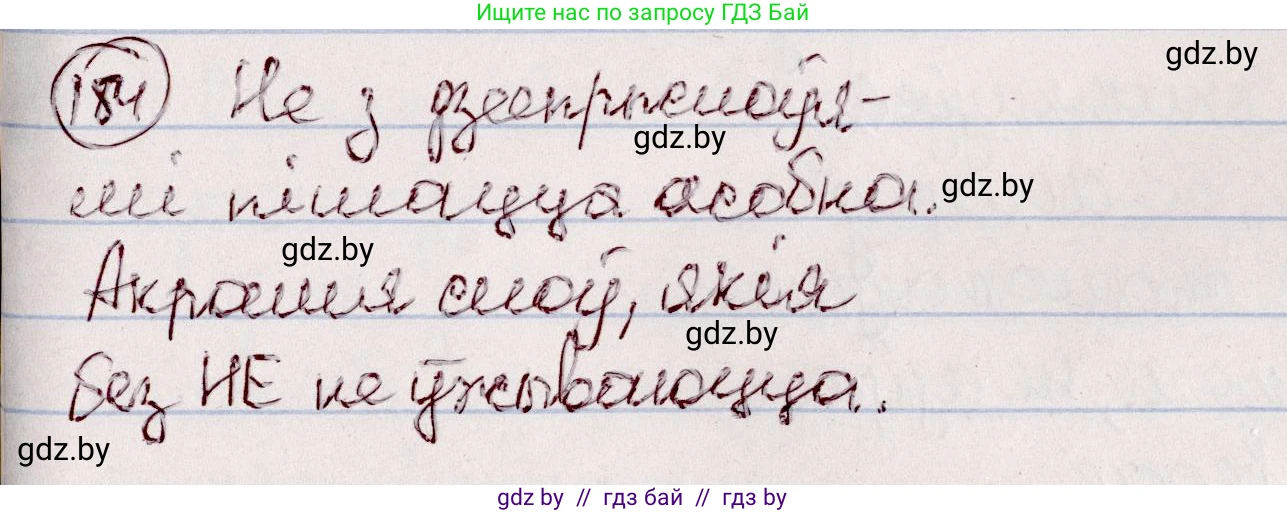 Ищите нас по запросу ГДЗ Бай
gdz.by
184 Не з дзеепрыслоўя-
gdz.by
мі пішацца асобна.
gdz.by
gdz.by
Акрамя слоў, якія
gdz.by
без НЕ не ўжываюцца.
gdz.by
gdz.by // гдз бай // гдз by